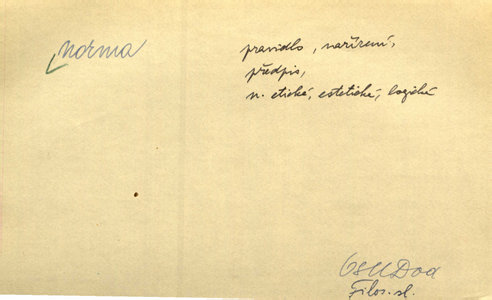 norma
pravidlo, nařízení,
předpis,
n. etické, estetické, logické
OSUDod
Filos. sl.